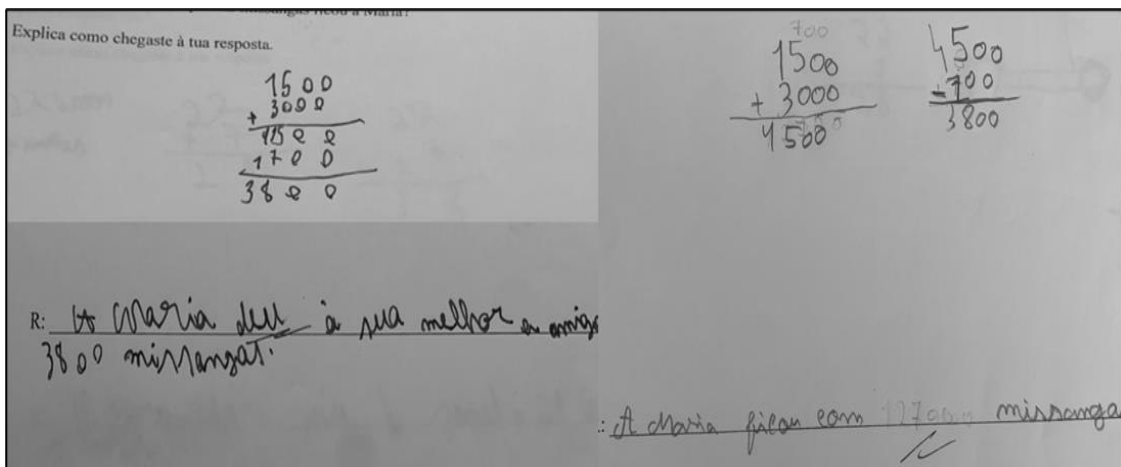 Explica como chegaste à tua resposta.
1500
+ 3000
4500
1700
3800
R: A Maria deu à sua melhor amiga
3800 missangas.
700
1500
+ 3000
4500
4500
- 700
3800
A Maria ficou com missanga